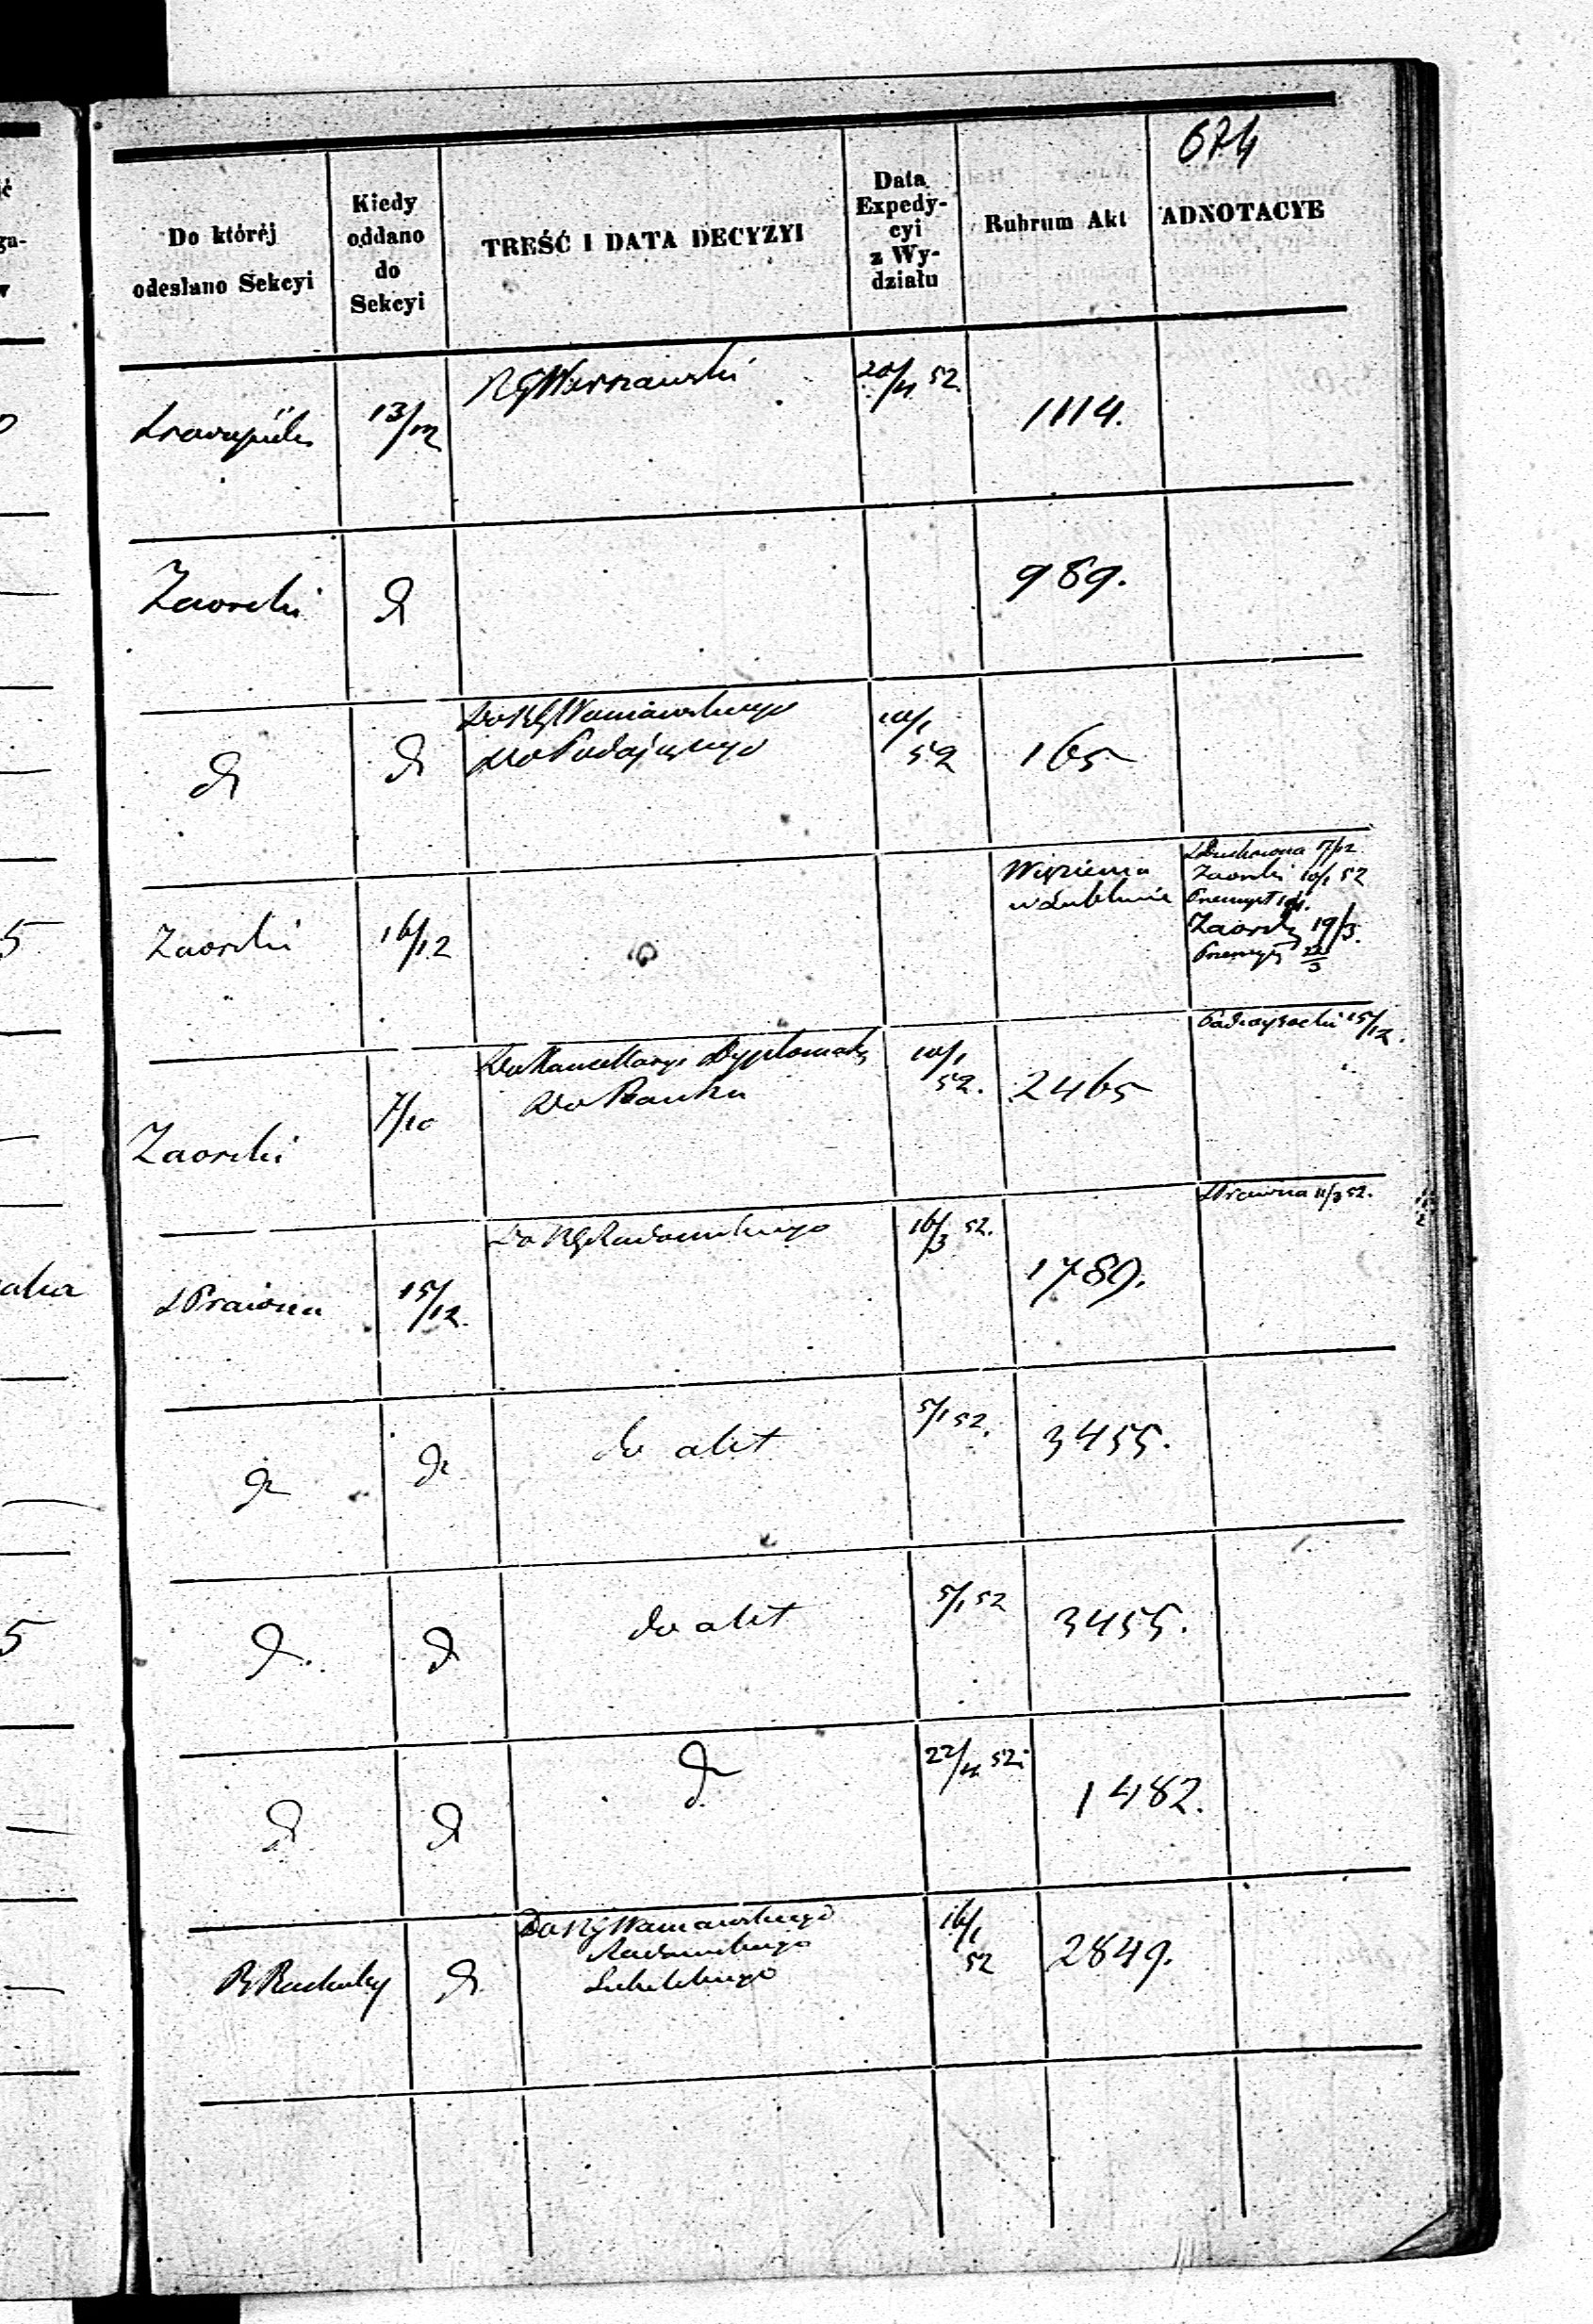 674
Do któréj
odesłano Sekcyi
Kiedy
oddano
do
Sekcyi
TREŚĆ I DATA DECYZYI
Data
Expedy-
cyi
z Wy-
działu
Rubrum Akt
ADNOTACYE
13/12
RG Warszawski
20/4 52
1114.
Zaorski
d
989.
d
d
Do RG Warszawskiego
Do Podającego
10/1
52
165
Zaorski
16/12
Więzienia
w Lublinie
Zaorski 10/1 52
Zaorski 19/3.
Zaorski
7/10
Do Kancellaryi Dyplomaty
Do Banku
10/1
52.
2465
15/12.
Prawna
15/12.
Do RG Radomskiego
16/3 52.
1789.
Prawna 11/3 52.
d
d
do akt
5/1 52.
3455.
d
d
do akt
5/1 52
3455.
d
d
d
22/4 52.
1482.
d
Do RG Warszawskiego
Radomskiego
Lubelskiego
16/1
52
2849.